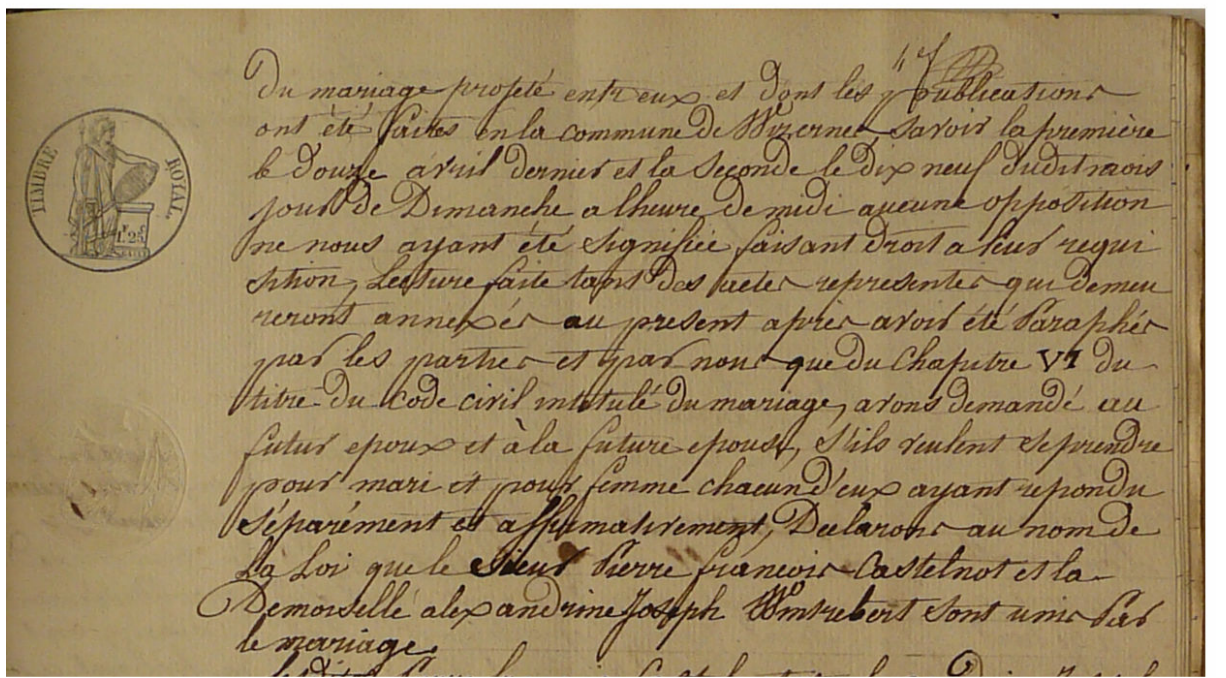 47
Du mariage projeté entr eux et dont les publications
ont été faites en la commune de Wizernes Savoir la première
le Douze avril dernier et la Seconde le Dix neuf dudit mois
jour de Dimanche a lheure de midi aucune opposition
ne nous ayant été Signifiée faisant Droit a leur requi
sition, Lecture faite tant des actes representés qui demeu
reront annexés au present après avoir été Paraphés
par les parties et par nous que du Chapitre VI du
titre du Code civil intitulé du mariage, avons demandé au
futur epoux et à la future epouse, S'ils veulent se prendre
pour mari et pour femme chacun d'eux ayant repondu
Séparément et affirmativement, Declarons au nom de
La Loi que le Sieur Pierre françois Castelnot et la
Demoiselle alexandrine Joseph Wintrebert Sont unis Par
le mariage.
TIMBRE ROYAL.
1F 25C